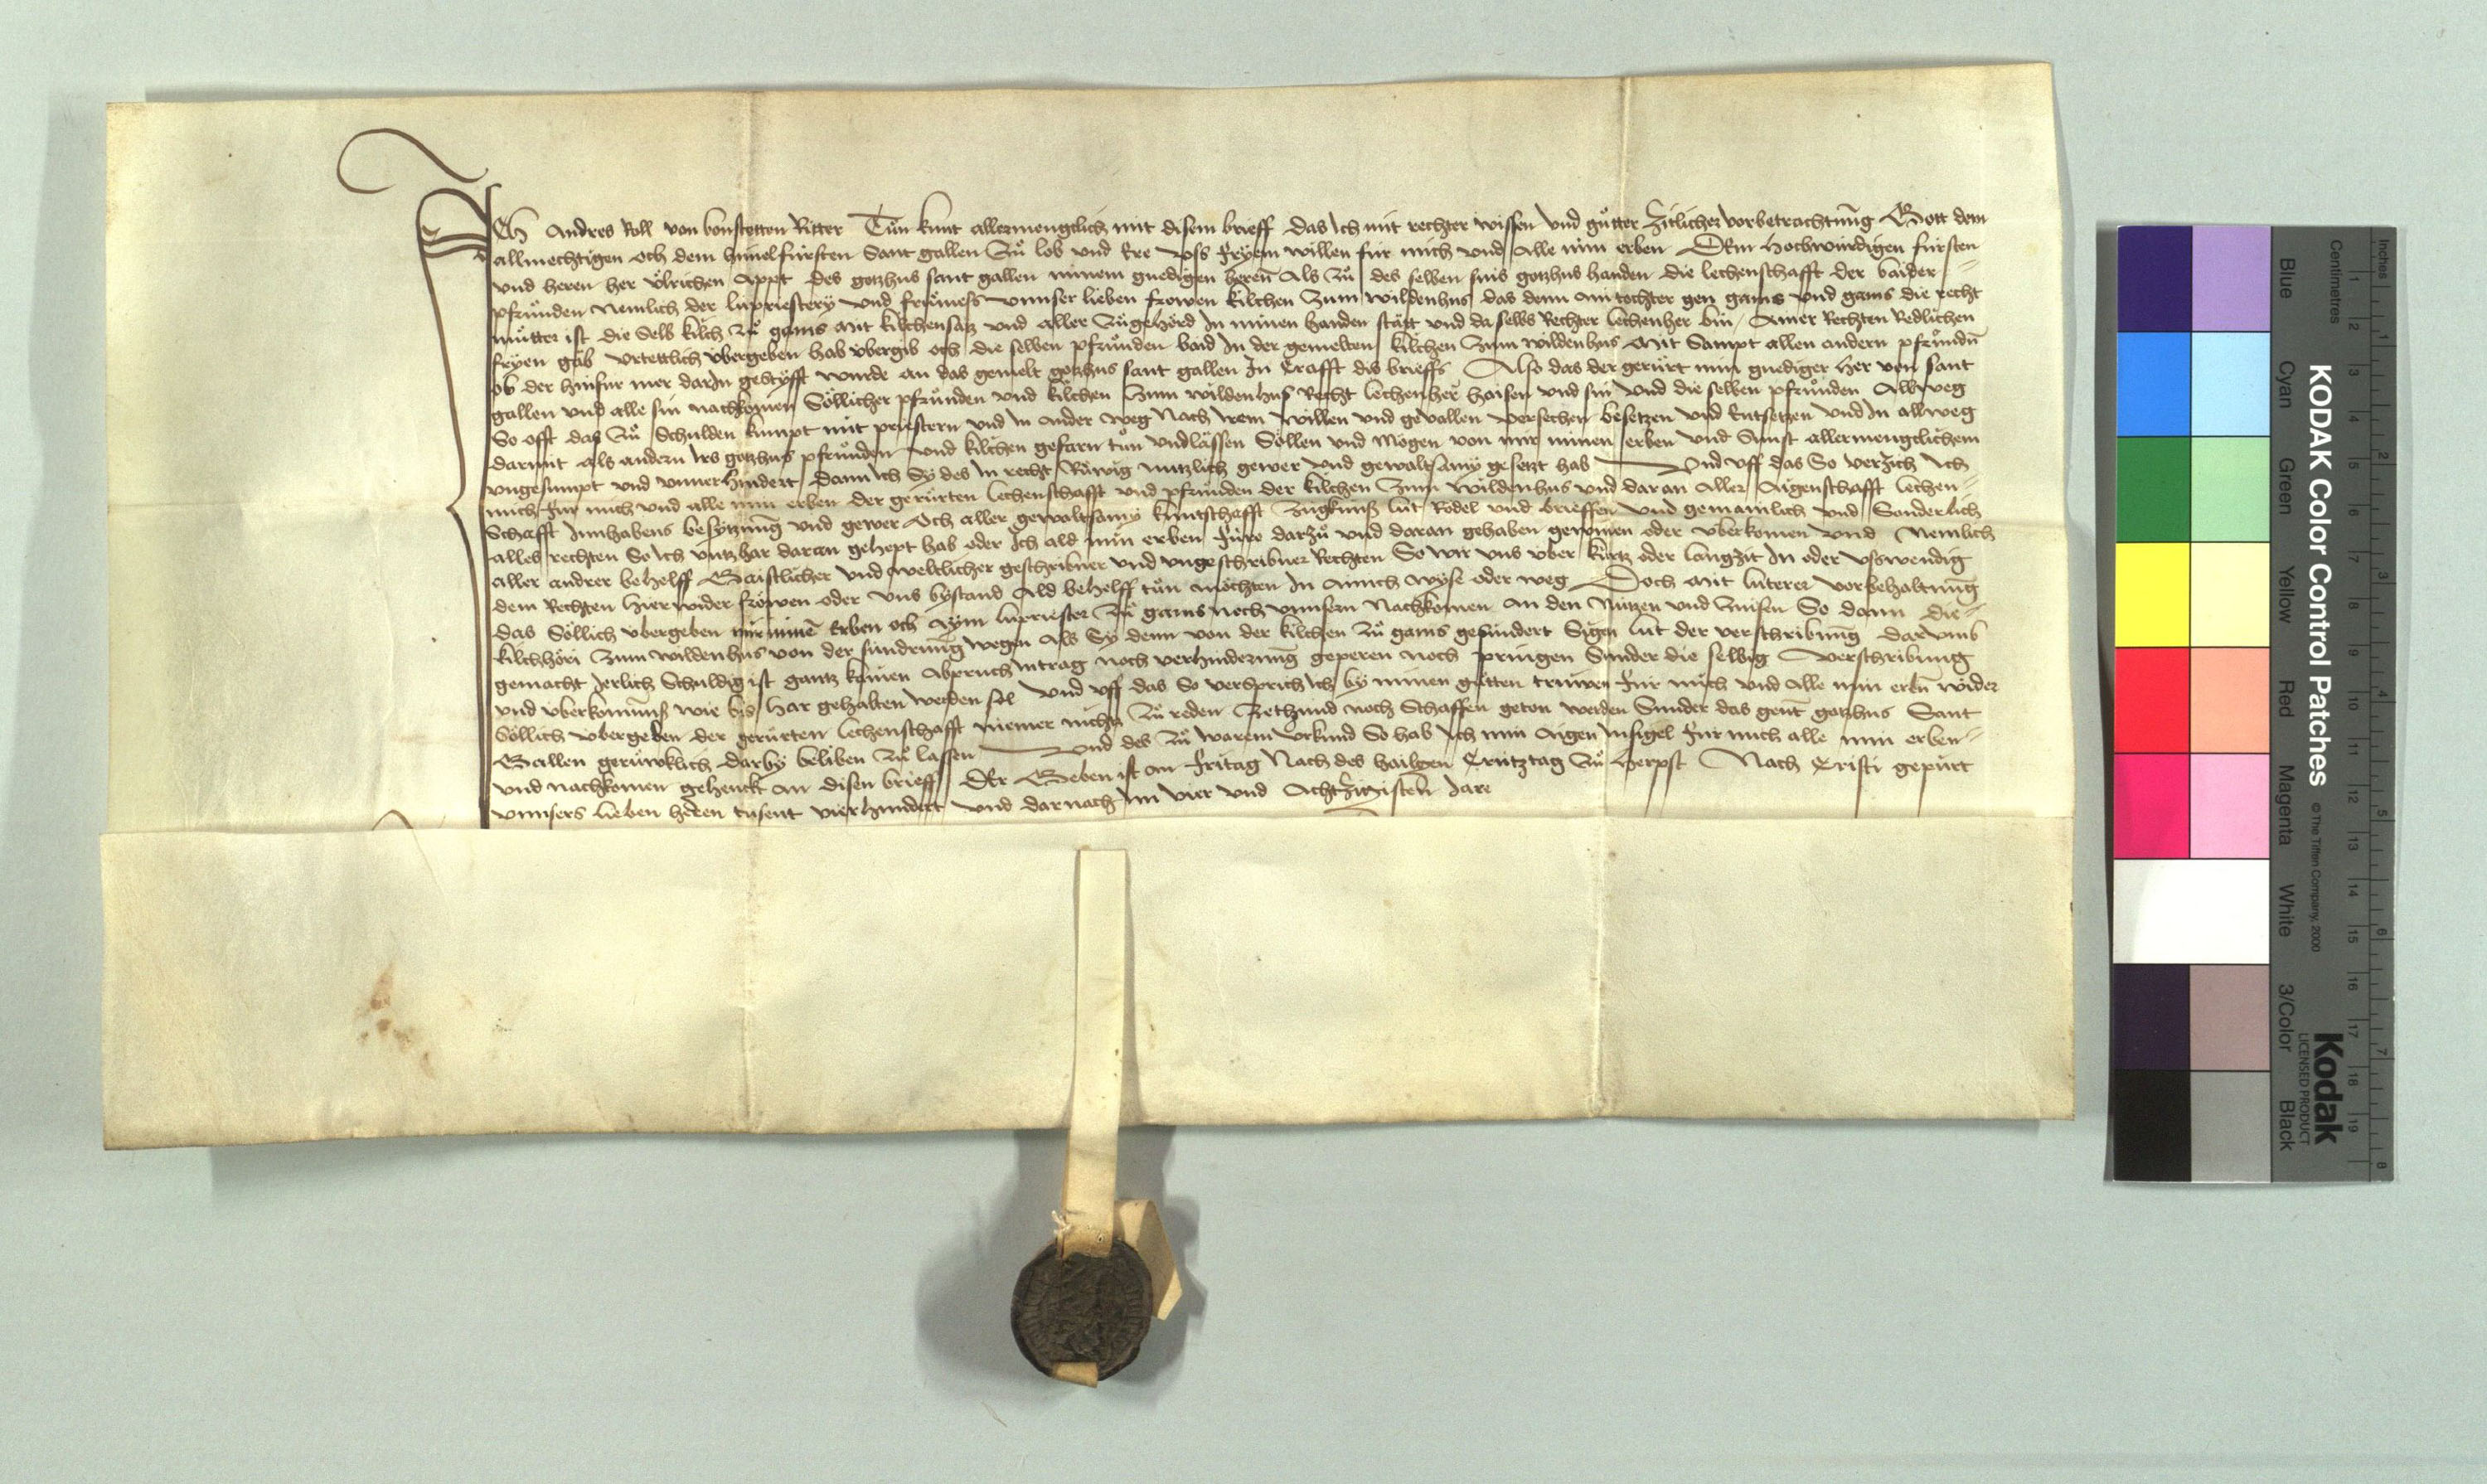 Ich Andres Roll von bonstetten Ritter Tůn kunt allermengclich mit disem brieff das Ich mit rechter wissen vnd gůtter zitlicher vorbetrachtung Gott dem
allmechtigen och dem himelfürsten Sant gallen Zů lob vnd Ere vss fryem willen für mich vnd Alle min erben Dem hochwürdigen fürsten
vnd heren her Ůlrichen Appt des gotzhus sant gallen minem gnedigen heren Als Zů des selben sins gotzhus handen die lechenschafft der baider
pfrůnden Nemlich der lüpriestery vnd frümess vnnser lieben frowen kilchen Zum wildenhus das denn ain tochter gen gams vnd gams die recht
můtter ist die Selb kilch zů gams mit kilchensatz vnd aller Zůgehörd In minen handen stätt vnd daselbs Rechter lechenher bin Ainer Rechten Redlichen
fryen gäb vrtettlich übergeben hab übergib och die selben pfrůnden baid In der gemelten kilchen Zum wildenhus mit Sampt allen andern pfrůnden
ob der hinfur mer darIn gestyfft wurde an das gemelt gotzhus sant gallen In krafft dis brieffs Also das der gerürt min gnediger her von sant
gallen vnd alle sin nachkomen Söllicher pfrůnden vnd kilchen Zum wildenhus Recht lechenher haisen vnd sin vnd die selben pfrůnden Allweg
So offt das Zů Schulden kumpt mit priestern vnd In ander weg Nach Irem willen vnd gevallen versechen besetzen vnd Entsetzen vnd In allweg
darmit als andern Irs gotzhus pfrůnden vnd kilchen gefarn tůn vnd lässen Söllen vnd Mögen von mir minen erben vnd Sunst allermengclichem
vngesumpt vnd vnuerhindert Dann Ich Sy des In recht Räwig nutzlich gewer vnd gewaltsamy gesetzt hab Vnd vff das So verzich Ich
mich für mich vnd alle min erben der gerürten lechenschafft vnd pfrůnden der kilchen Zum Wildenhus vnd daran Aller Aigenschafft lechen
Schafft Innhabens besytzung vnd gewer Och aller gewaltsamy kuntschafft Zügknuß lüt Rodel vnd brieffen vnd gemainlich vnd Sonderlich
alles rechten So Ich vntzhar daran gehept hab oder Ich ald min erben fůro darzů vnd daran gehaben gewinen oder vberkomen vnd Nemlich
aller andrer behelff Gaistlicher vnd weltlicher geschribner vnd vngeschribner Rechten So wir vns über kurtz oder langzit In oder vsswendig
dem Rechten hierwider fröwen oder vns bystand Ald behelff tůn möchten In ainich wyse oder weg Doch mit luterer vorbehaltung
das Söllich vbergeben mir minen Erben och Aym lüpriester Zů gams noch vnnsern Nachkomen An den Nutzen vnd Zinsen So dann die
kilchhöri Zum wildenhus von der sundrung wegen Als Sy denn von der kilchen Zů gams gesundert Sigen lut der verschribung darvmb
gemacht Jerlich Schuldig ist gantz kainen Abpruch Intrag noch verhinderung geperen noch pringen Sunder die selbig verschribung
vnd vberkomnuß wie bis har gehalten werden sol Vnd vff das So versprich Ich by minen gůtten truwen für mich vnd Alle min erben wider
Söllich vbergeben der gerürten lechenschafft niemer nichtz Zů reden Zethund noch Schaffen geton werden Sunder das genant gotzhus Sant
Gallen gerüwklich darby beliben Zů lassen Vnd des Zů warem Vrkund So hab Ich min Aigen Insigel für mich alle min erben
vnd nachkomen gehenckt an disen brieff Der Geben ist am fritag Nach des hailgen Crütztag Zů herpst Nach Cristi gepurt
vnnsers lieben heren tusent vierhundert vnd darnach Im vier vnd Achtzigisten Jare
KODAK Color Control Patches
© The Tiffen Company, 2000
Kodak
LICENSED PRODUCT
Inches
Centimetres
1 2 3 4 5 6 7 8
1 2 3 4 5 6 7 8 9 10 11 12 13 14 15 16 17 18 19
Blue Cyan Green Yellow Red Magenta White 3/Color Black